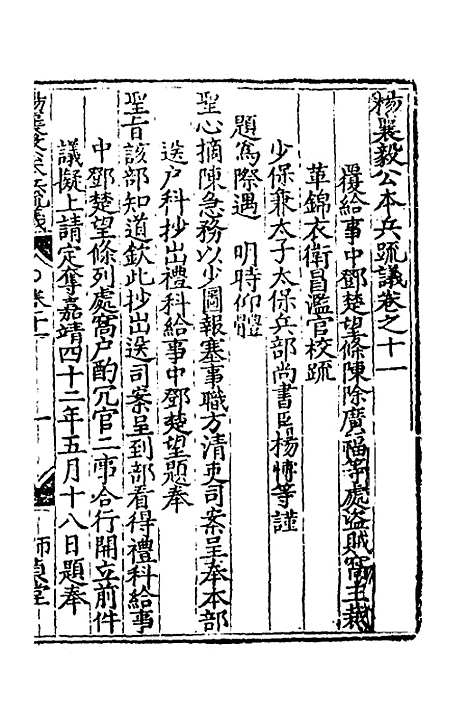 楊襄毅公本兵疏議卷之十一
覆給事中鄧楚望條陳除廣福等處盜賊窩主裁
革錦衣衛冒濫官校疏
少保兼太子太保兵部尚書臣楊博等謹
題為際遇 明時仰體
聖心摘陳急務以少圖報塞事職方清吏司案呈奉本部
送户科抄出禮科給事中鄧楚望題奉
聖旨該部知道欽此抄出送司案呈到部看得禮科給事
中鄧楚望條列處窩户酌冗官二事合行開立前件
議擬上請定奪嘉靖四十二年五月十八日題奉
楊襄毅公本兵疏議
卷十一
一
師貞堂